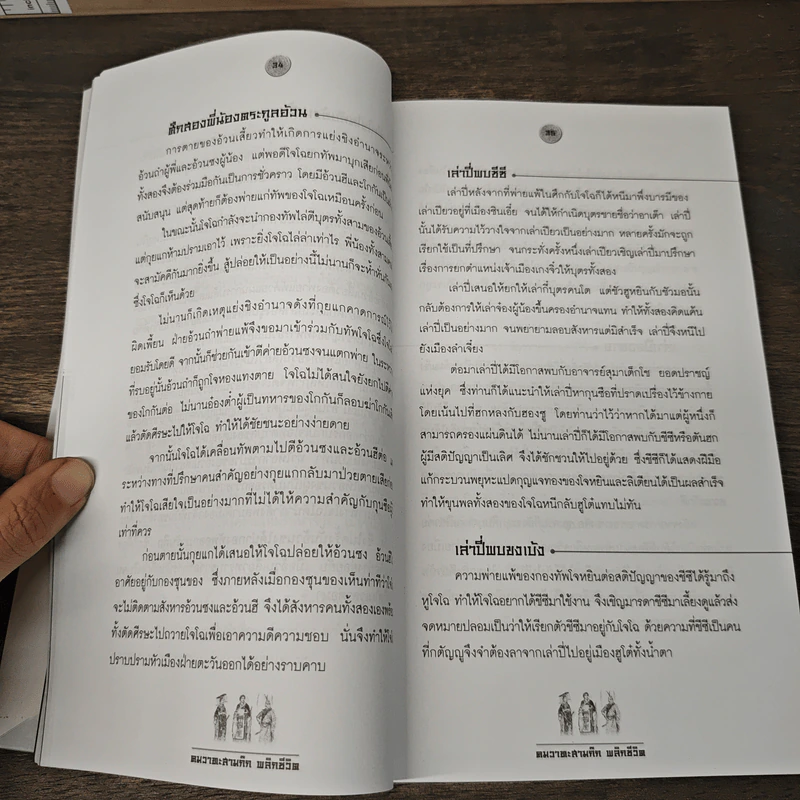 34
ศึกสองพี่น้องตระกูลอ้วน
การตายของอ้วนเสี้ยวทำให้เกิดการแย่งชิงอำนาจระหว่าง
อ้วนถำผู้พี่และอ้วนซงผู้น้อง แต่พอดีโจโฉยกทัพมาบุกเสียก่อน
ทั้งสองจึงต้องร่วมมือกันเป็นการชั่วคราว โดยมีอ้วนฮีและโกกันเป็น
สนับสนุน แต่สุดท้ายก็ต้องพ่ายแก่ทัพของโจโฉเหมือนครั้งก่อน
ในขณะนั้นโจโฉกำลังจะนำกองทัพไล่ตีบุตรทั้งสามของอ้วน
แต่กุยแกห้ามปรามเอาไว้ เพราะยิ่งโจโฉไล่ล่าเท่าไร พี่น้องทั้งสาม
จะสามัคคีกันมากยิ่งขึ้น สู้ปล่อยให้เป็นอย่างนี้ไม่นานก็จะห้ำหั่นกัน
ซึ่งโจโฉก็เห็นด้วย
ไม่นานก็เกิดเหตุแย่งชิงอำนาจดังที่กุยแกคาดการณ์
ผิดเพี้ยน ฝ่ายอ้วนถำพ่ายแพ้จึงขอมาเข้าร่วมกับทัพโจโฉซึ่งโจโฉ
ยอมรับโดยดี จากนั้นก็ช่วยกันเข้าตีค่ายอ้วนซงจนแตกพ่าย ในระหว่าง
ที่รบอยู่นั้นอ้วนถำก็ถูกโจหองแทงตาย โจโฉไม่ได้สนใจยังยกไปตี
ของโกกันต่อ ไม่นานอ๋องต่ำผู้เป็นทหารของโกกันก็ลอบฆ่าโกกัน
แล้วตัดศีรษะไปให้โจโฉ ทำให้ได้ชัยชนะอย่างง่ายดาย
จากนั้นโจโฉได้เคลื่อนทัพตามไปตีอ้วนซงและอ้วนฮีต่อ
ระหว่างทางที่ปรึกษาคนสำคัญอย่างกุยแกกลับมาป่วยตายเสีย
ทำให้โจโฉเสียใจเป็นอย่างมากที่ไม่ได้ให้ความสำคัญกับกุนซือ
เท่าที่ควร
ก่อนตายนั้นกุยแกได้เสนอให้โจโฉปล่อยให้อ้วนซง อ้วนฮี
อาศัยอยู่กับกองซุนของ ซึ่งภายหลังเมื่อกองซุนของเห็นท่าทีว่าโจโฉ
จะไม่ติดตามสังหารอ้วนซงและอ้วนฮี จึงได้สังหารคนทั้งสองเอง
ทั้งตัดศีรษะไปถวายโจโฉเพื่อเอาความดีความชอบ นั่นจึงทำให้
ปราบปรามหัวเมืองฝ่ายตะวันออกได้อย่างราบคาบ
คมวาทะสามก๊ก พลิกชีวิต
35
เล่าปี่พบชีซี
เล่าปี่หลังจากที่พ่ายแพ้ในศึกกับโจโฉก็ได้หนีมาพึ่งบารมีของ
เล่าเปียวอยู่ที่เมืองซินเอี๋ย จนได้ให้กำเนิดบุตรชายชื่อว่าอาเต๊า เล่าปี่
นั้นได้รับความไว้วางใจจากเล่าเปียวเป็นอย่างมาก หลายครั้งมักจะถูก
เรียกใช้เป็นที่ปรึกษา จนกระทั่งครั้งหนึ่งเล่าเปียวเชิญเล่าปี่มาปรึกษา
เรื่องการยกตำแหน่งเจ้าเมืองเกงจิ๋วให้บุตรทั้งสอง
เล่าปี่เสนอให้ยกให้เล่ากี๋บุตรคนโต แต่ชัวฮูหยินกับชัวมอนั้น
กลับต้องการให้เล่าจ๋องผู้น้องขึ้นครองอำนาจแทน ทำให้ทั้งสองคิดแค้น
เล่าปี่เป็นอย่างมาก จนพยายามลอบสังหารแต่มิสำเร็จ เล่าปี่จึงหนีไป
ยังเมืองลำเจี๋ยง
ต่อมาเล่าปี่ได้มีโอกาสพบกับอาจารย์สุมาเต็กโช ยอดปราชญ์
แห่งยุค ซึ่งท่านก็ได้แนะนำให้เล่าปี่หากุนซือที่ปราดเปรื่องไว้ข้างกาย
โดยเน้นไปที่ฮกหลงกับฮองซู โดยท่านว่าไว้ว่าหากได้มาแต่ผู้หนึ่งก็
สามารถครองแผ่นดินได้ ไม่นานเล่าปี่ก็ได้มีโอกาสพบกับชีซีหรือตันฮก
ผู้มีสติปัญญาเป็นเลิศ จึงได้ชักชวนให้ไปอยู่ด้วย ซึ่งชีซีก็ได้แสดงฝีมือ
แก้กระบวนพยุหะแปดกุญแจทองของโจหยินและลิเตียนได้เป็นผลสำเร็จ
ทำให้ขุนพลทั้งสองของโจโฉหนีกลับฮูโต๋แทบไม่ทัน
เล่าปี่พบขงเบ้ง
ความพ่ายแพ้ของกองทัพโจหยินต่อสติปัญญาของชีซีได้รู้มาถึง
หูโจโฉ ทำให้โจโฉอยากได้ชีซีมาใช้งาน จึงเชิญมารดาชีซีมาเลี้ยงดูแล้วส่ง
จดหมายปลอมเป็นว่าให้เรียกตัวชีซีมาอยู่กับโจโฉ ด้วยความที่ชีซีเป็นคน
ที่กตัญญูจึงจำต้องลาจากเล่าปี่ไปอยู่เมืองฮูโต๋ทั้งน้ำตา
คมวาทะสามก๊ก พลิกชีวิต